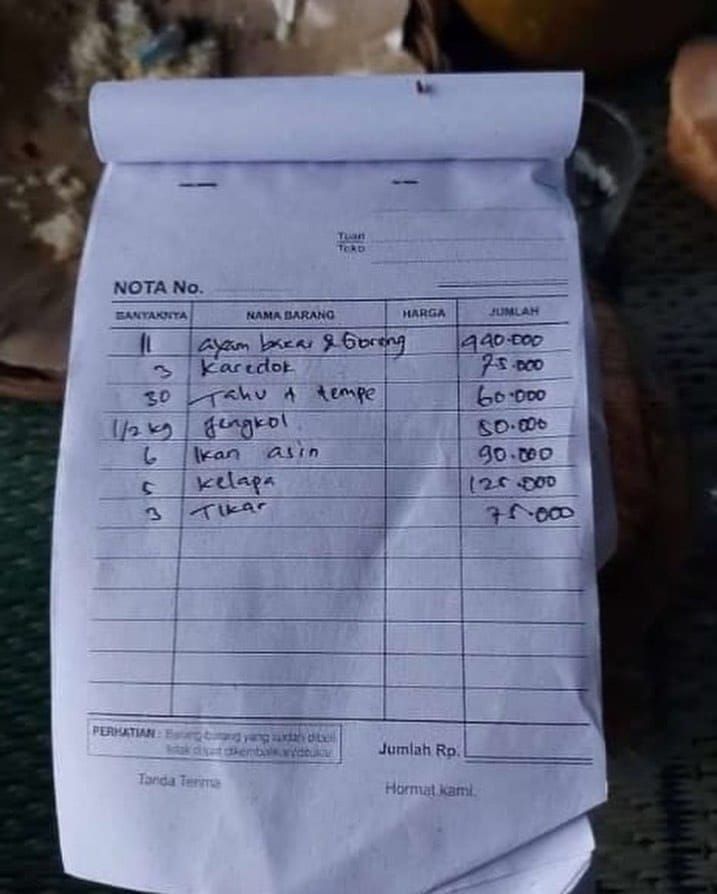 Tuan
Toko
NOTA No.
BANYAKNYA NAMA BARANG HARGA JUMLAH
11 ayam bakar & Goreng 940.000
3 Karedok 75.000
30 Tahu + tempe 60.000
1/2 kg Jengkol 80.000
6 Ikan asin 90.000
5 Kelapa 125.000
3 Tikar 75.000
PERHATIAN : Barang-barang yang sudah dibeli
tidak dapat dikembalikan/ditukar
Jumlah Rp.
Tanda Terima
Hormat kami,